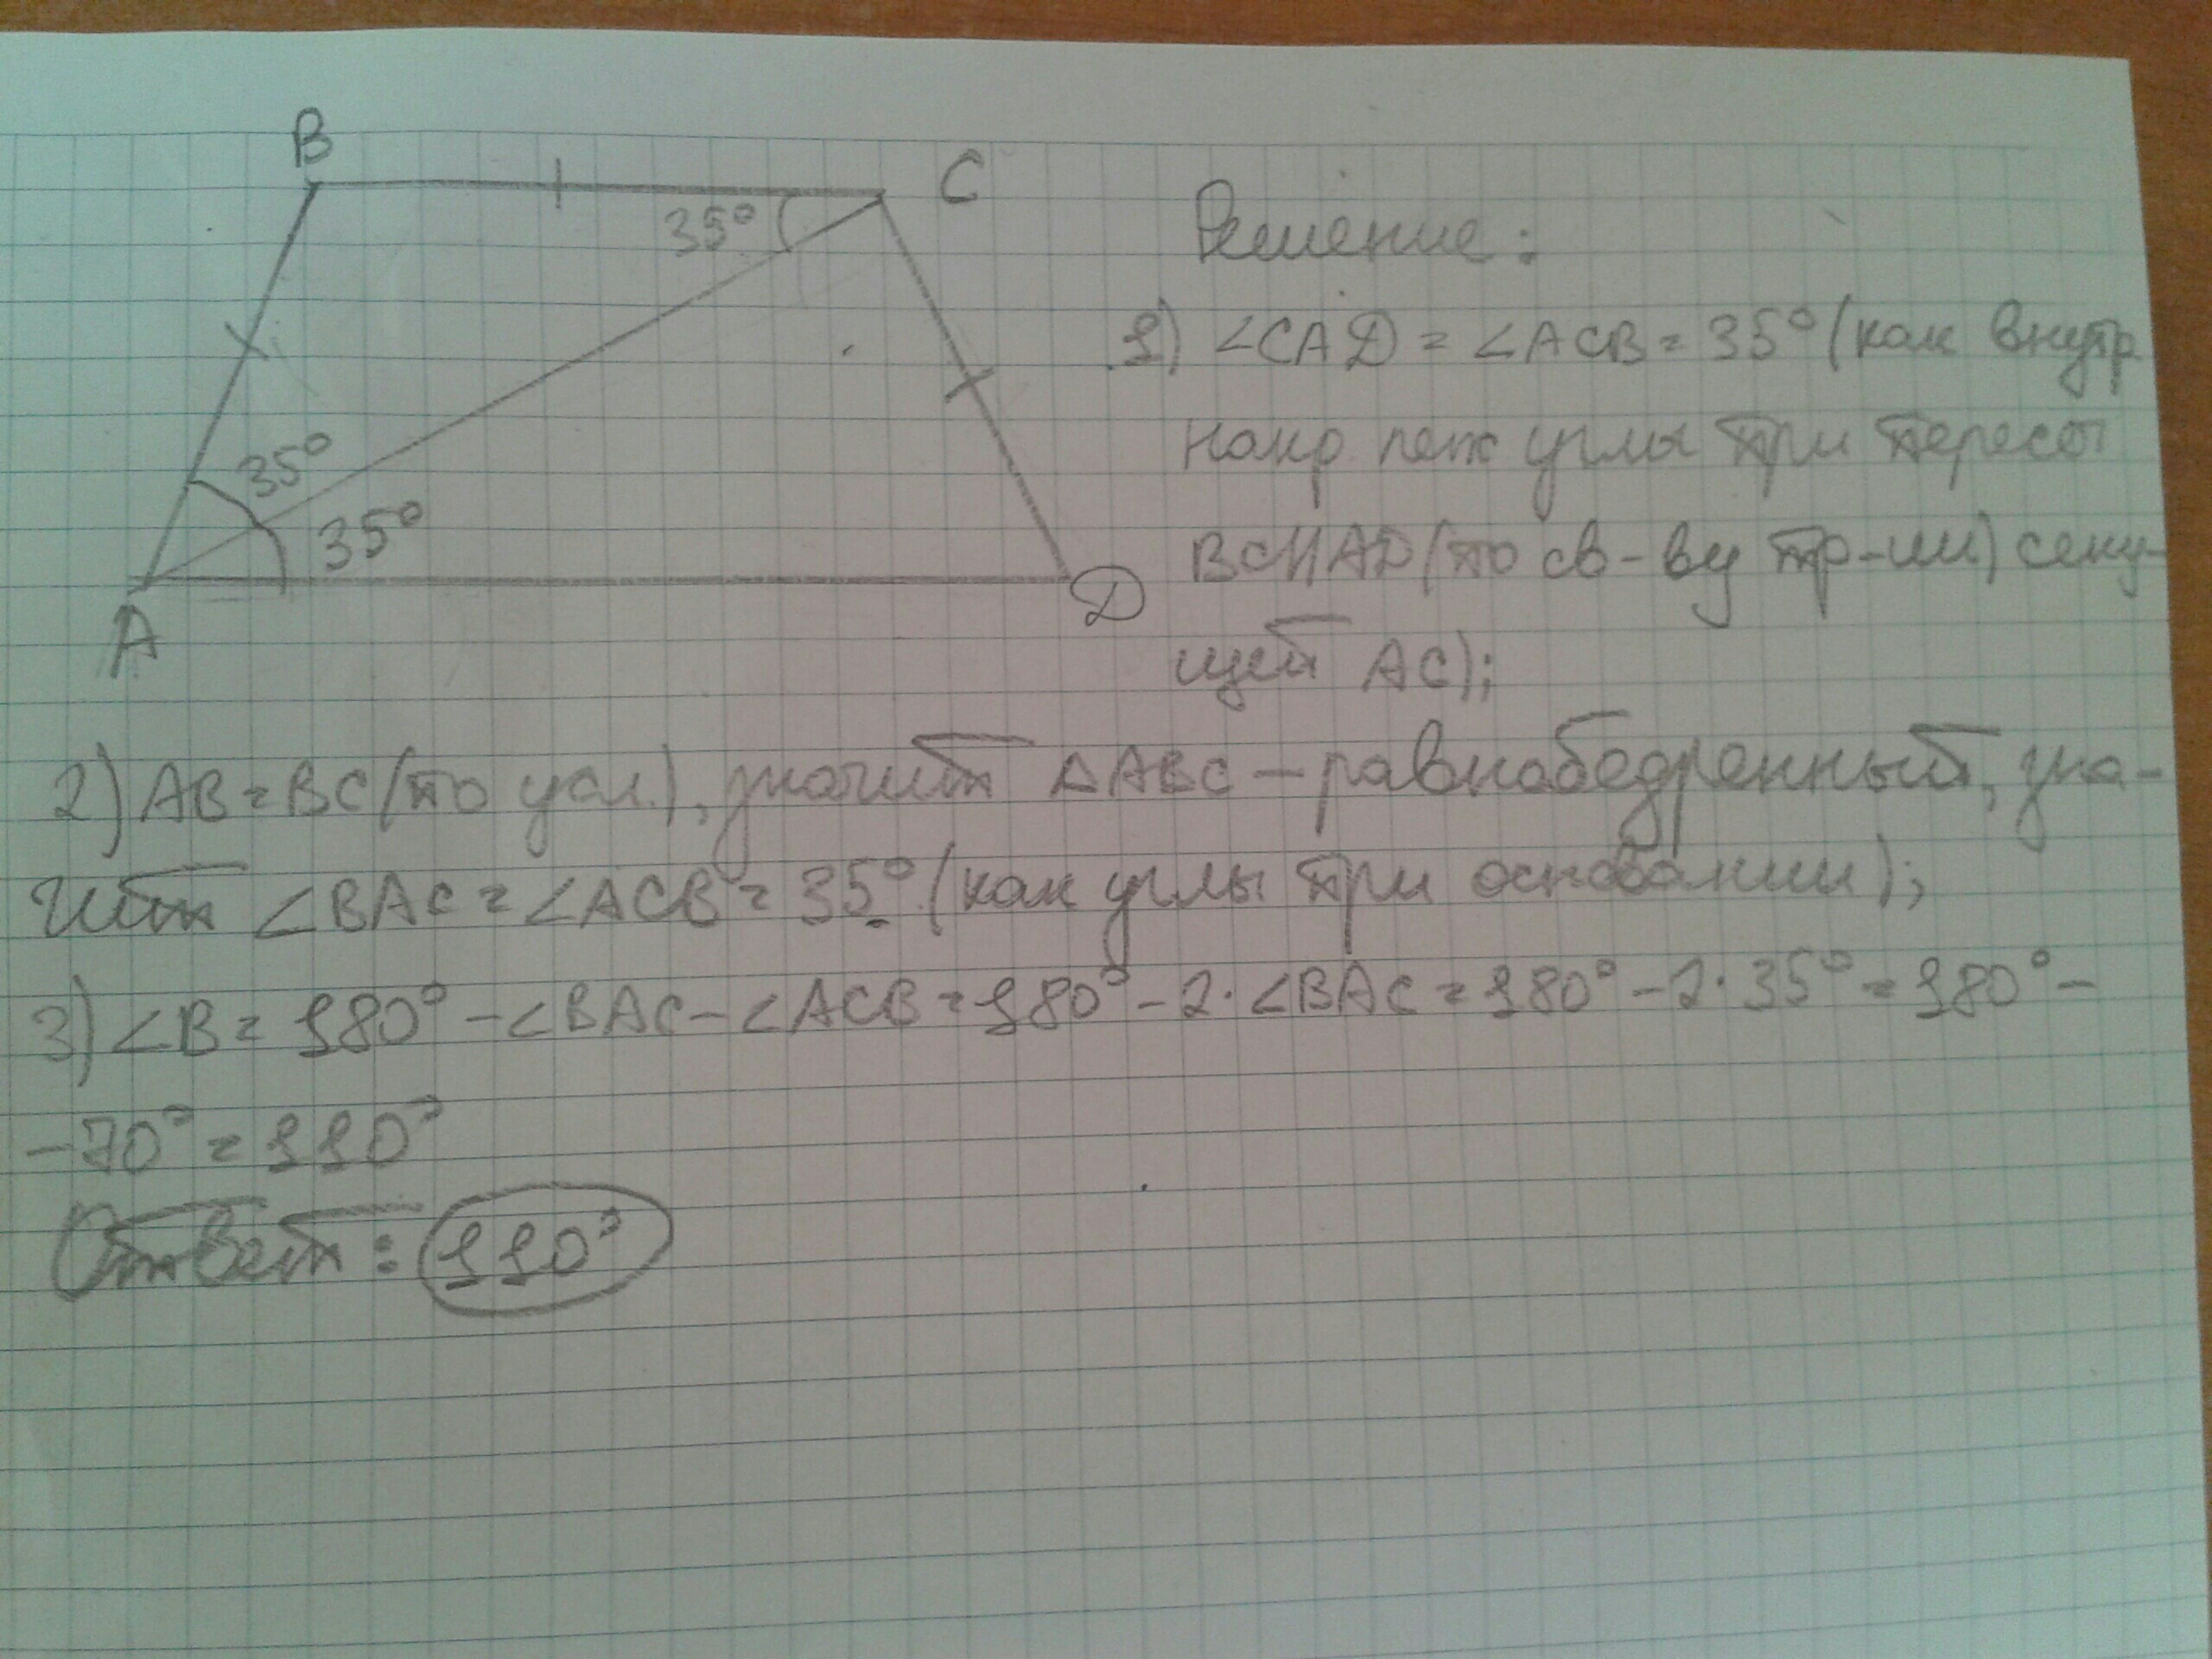 B
C
35°
35°
35°
A
D
Решение:
1) ∠CAD = ∠ACB = 35° (как внутр
накр леж углы при пересеч
BC||AD (по св-ву тр-ии) секу-
щей AC);
2) AB = BC (по усл.), значит ΔABC – равнобедренный, зна-
чит ∠BAC = ∠ACB = 35° (как углы при основании);
3) ∠B = 180° - ∠BAC - ∠ACB = 180° - 2·∠BAC = 180° - 2·35° = 180° -
- 70° = 110°
Ответ: 110°